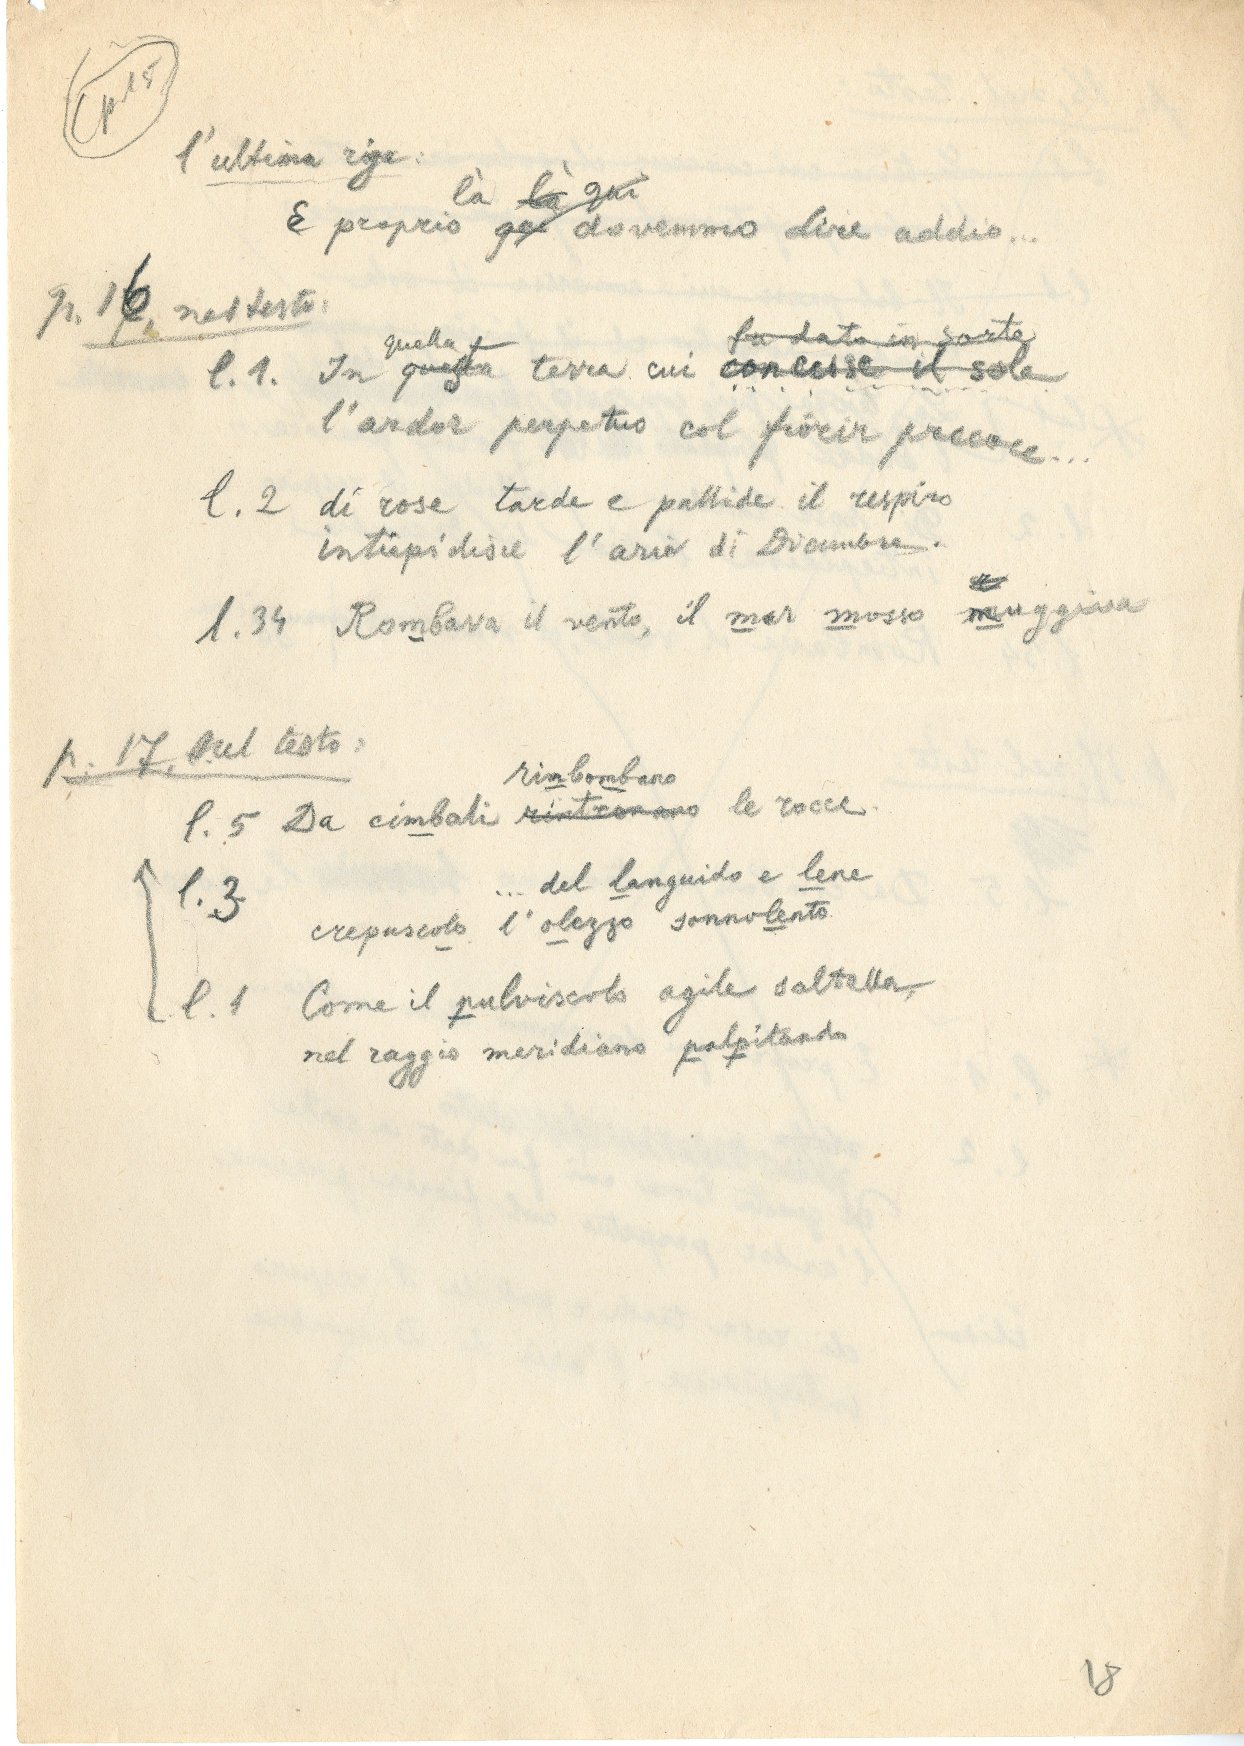 (p. 15
l'ultima riga:
là là qui
E proprio qui dovemmo dire addio...
p. 16, nel testo:
quella fu data in sorte
l. 1. In questa terra cui concesse il sole
l'ardor perpetuo col fiorir precoce...
l. 2 di rose tarde e pallide il respiro
intiepidisce l'aria di Dicembre.
l. 34 Rombava il vento, il mar mosso muggiva
p. 17, nel testo:
rimbombano
l. 5 Da cimbali rintronano le rocce.
l. 3 ... del languido e lene
crepuscolo l'olezzo sonnolento
l. 1 Come il pulviscolo agile saltella,
nel raggio meridiano palpitando
18